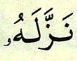 نَزَّلَهُۥ